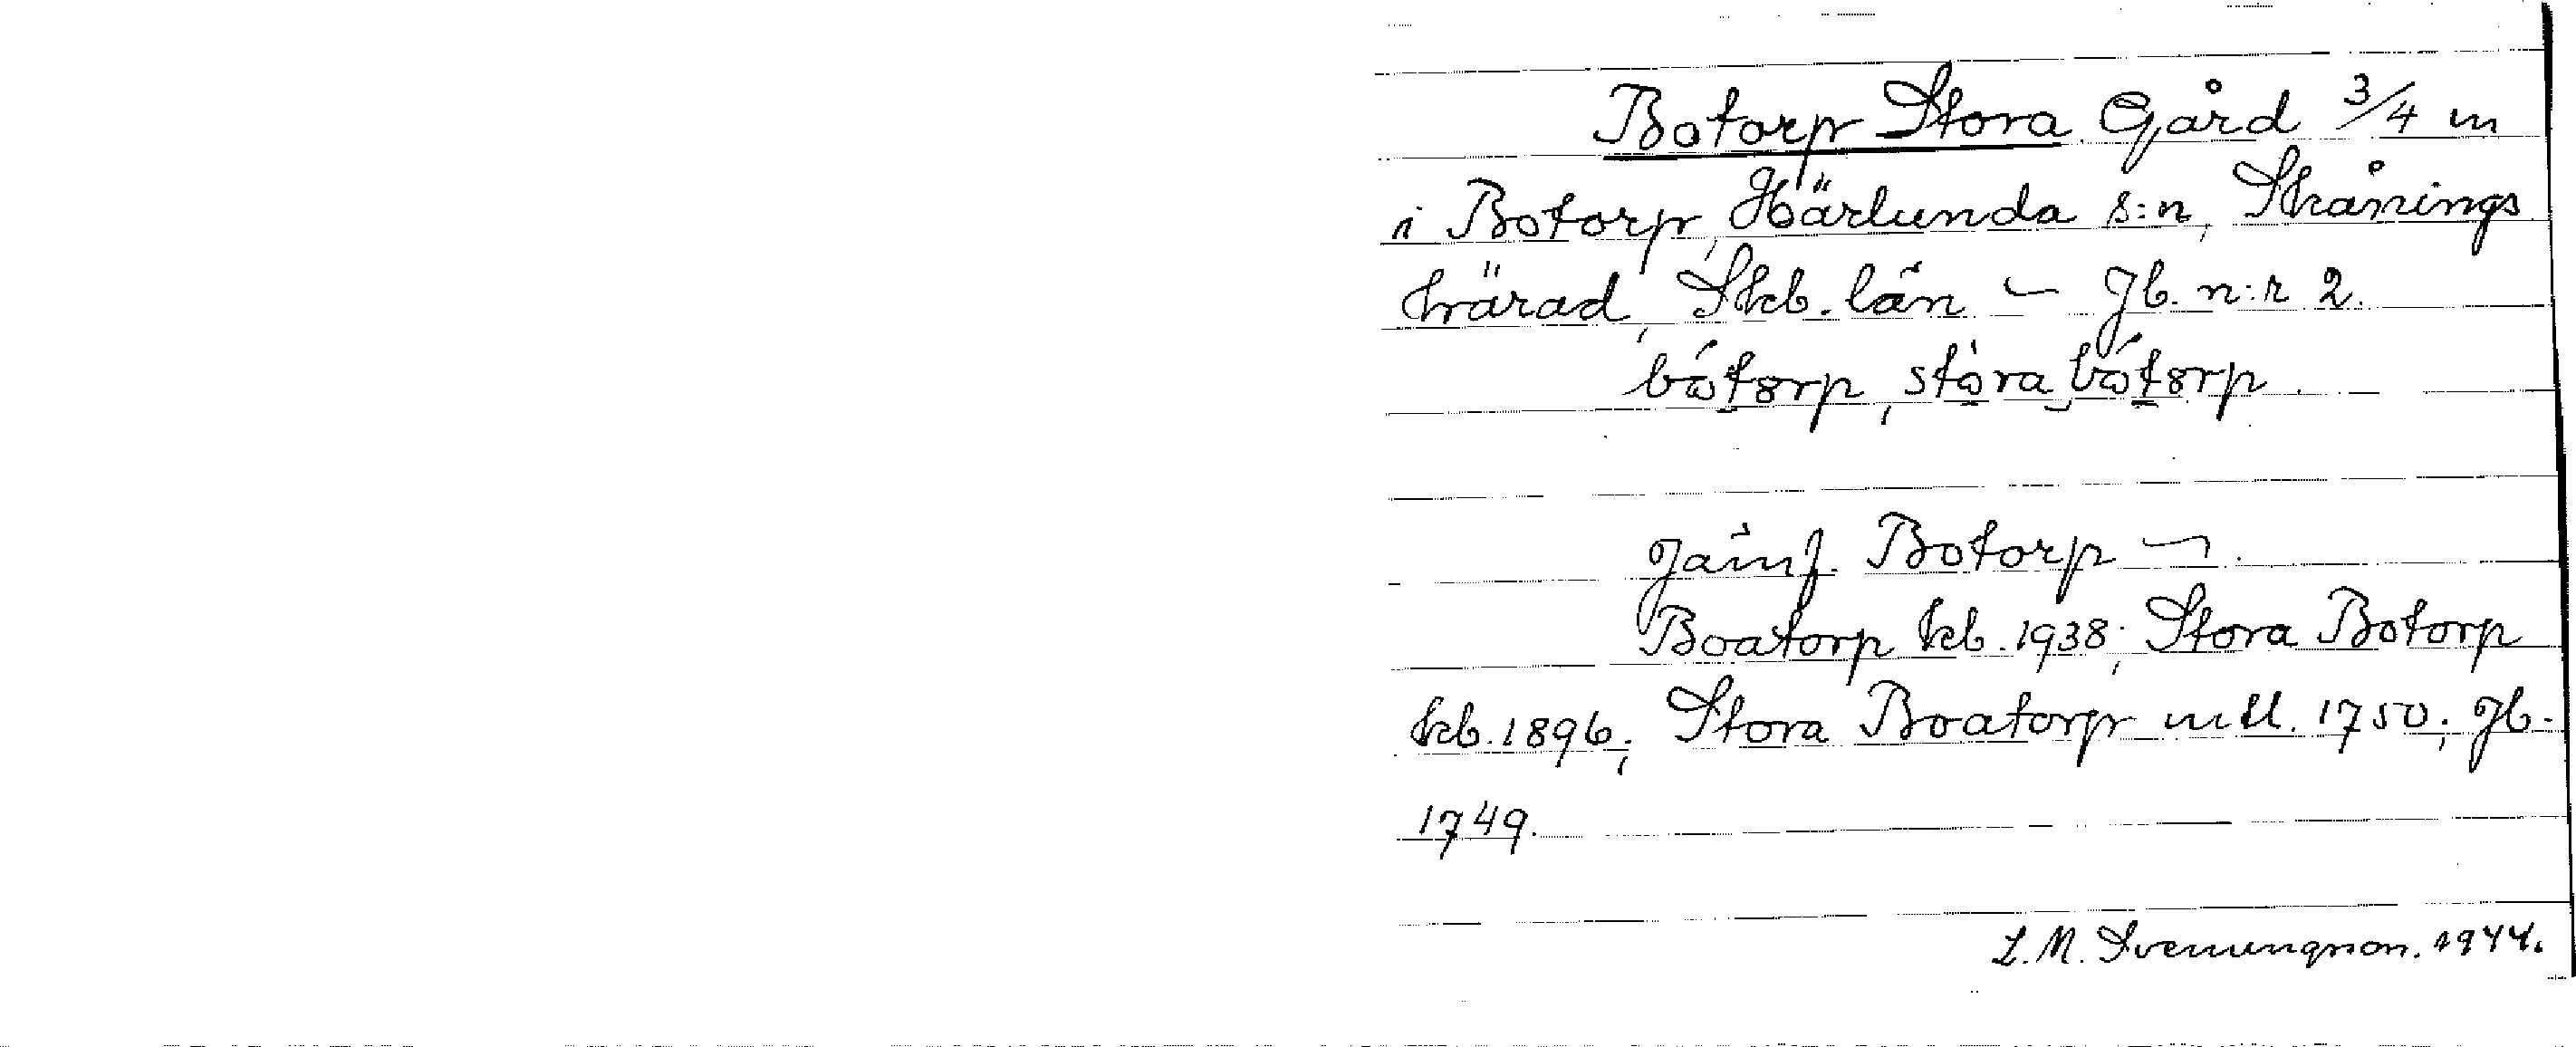 Botorp Stora Gård 3/4 m
i Botorp, Härlunda s:n, Skånings
härad, Skb. län – Jb. n:r 2.
bo᷄torp, stora bo᷄torp.
Jämf. Botorp ¬.
Boatorp kb. 1938; Stora Botorp
kb. 1896; Stora Boatorp mtl. 1750; Jb.
1749.
L. M. Svenungsson. 1944.